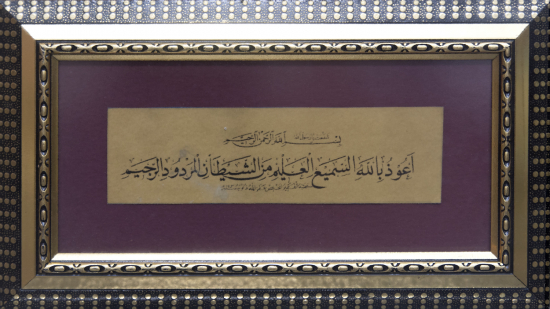 بسم الله الرحمن الرحيم
أعوذ بالله السميع العليم من الشيطان المردود الرجيم